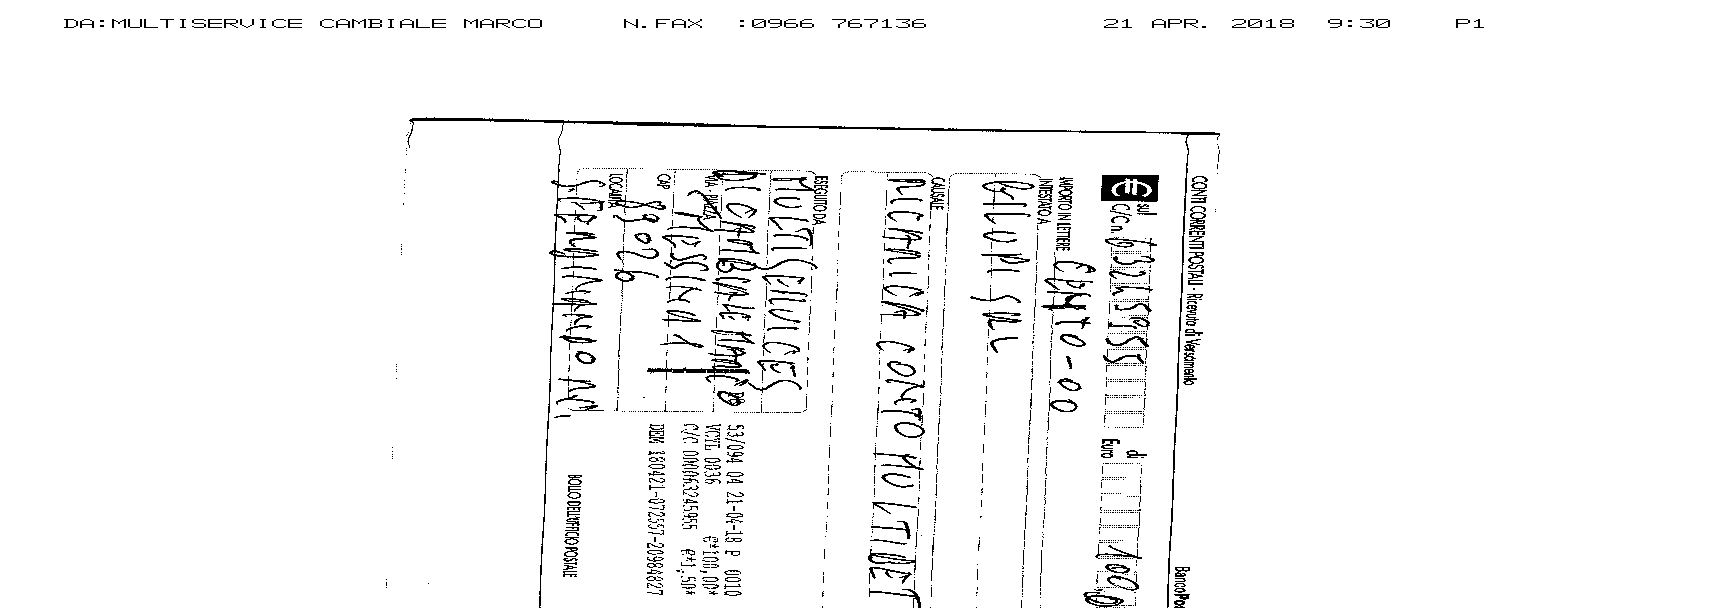 DA:MULTISERVICE CAMBIALE MARCO N.FAX :0966 767136 21 APR. 2018 9:30 P1
CONTI CORRENTI POSTALI - Ricevuta di Versamento
€ sul C/C n. 63245955 di Euro 100
IMPORTO IN LETTERE CENTO-00
INTESTATO A
GILUPI SRL
CAUSALE
RICARICA CONTO MULTIDET
ESEGUITO DA
MULTISERVICES
DI CAMBIALE MARCO
VIA - PIAZZA
MESSINA 1
CAP
89026
LOCALITÀ
S. FERDINANDO
53/094 04 21-04-18 P 0010
VCYL 0036 €*100,00*
C/C 000063245955 €*1,50*
BOLLO DELL'UFFICIO POSTALE